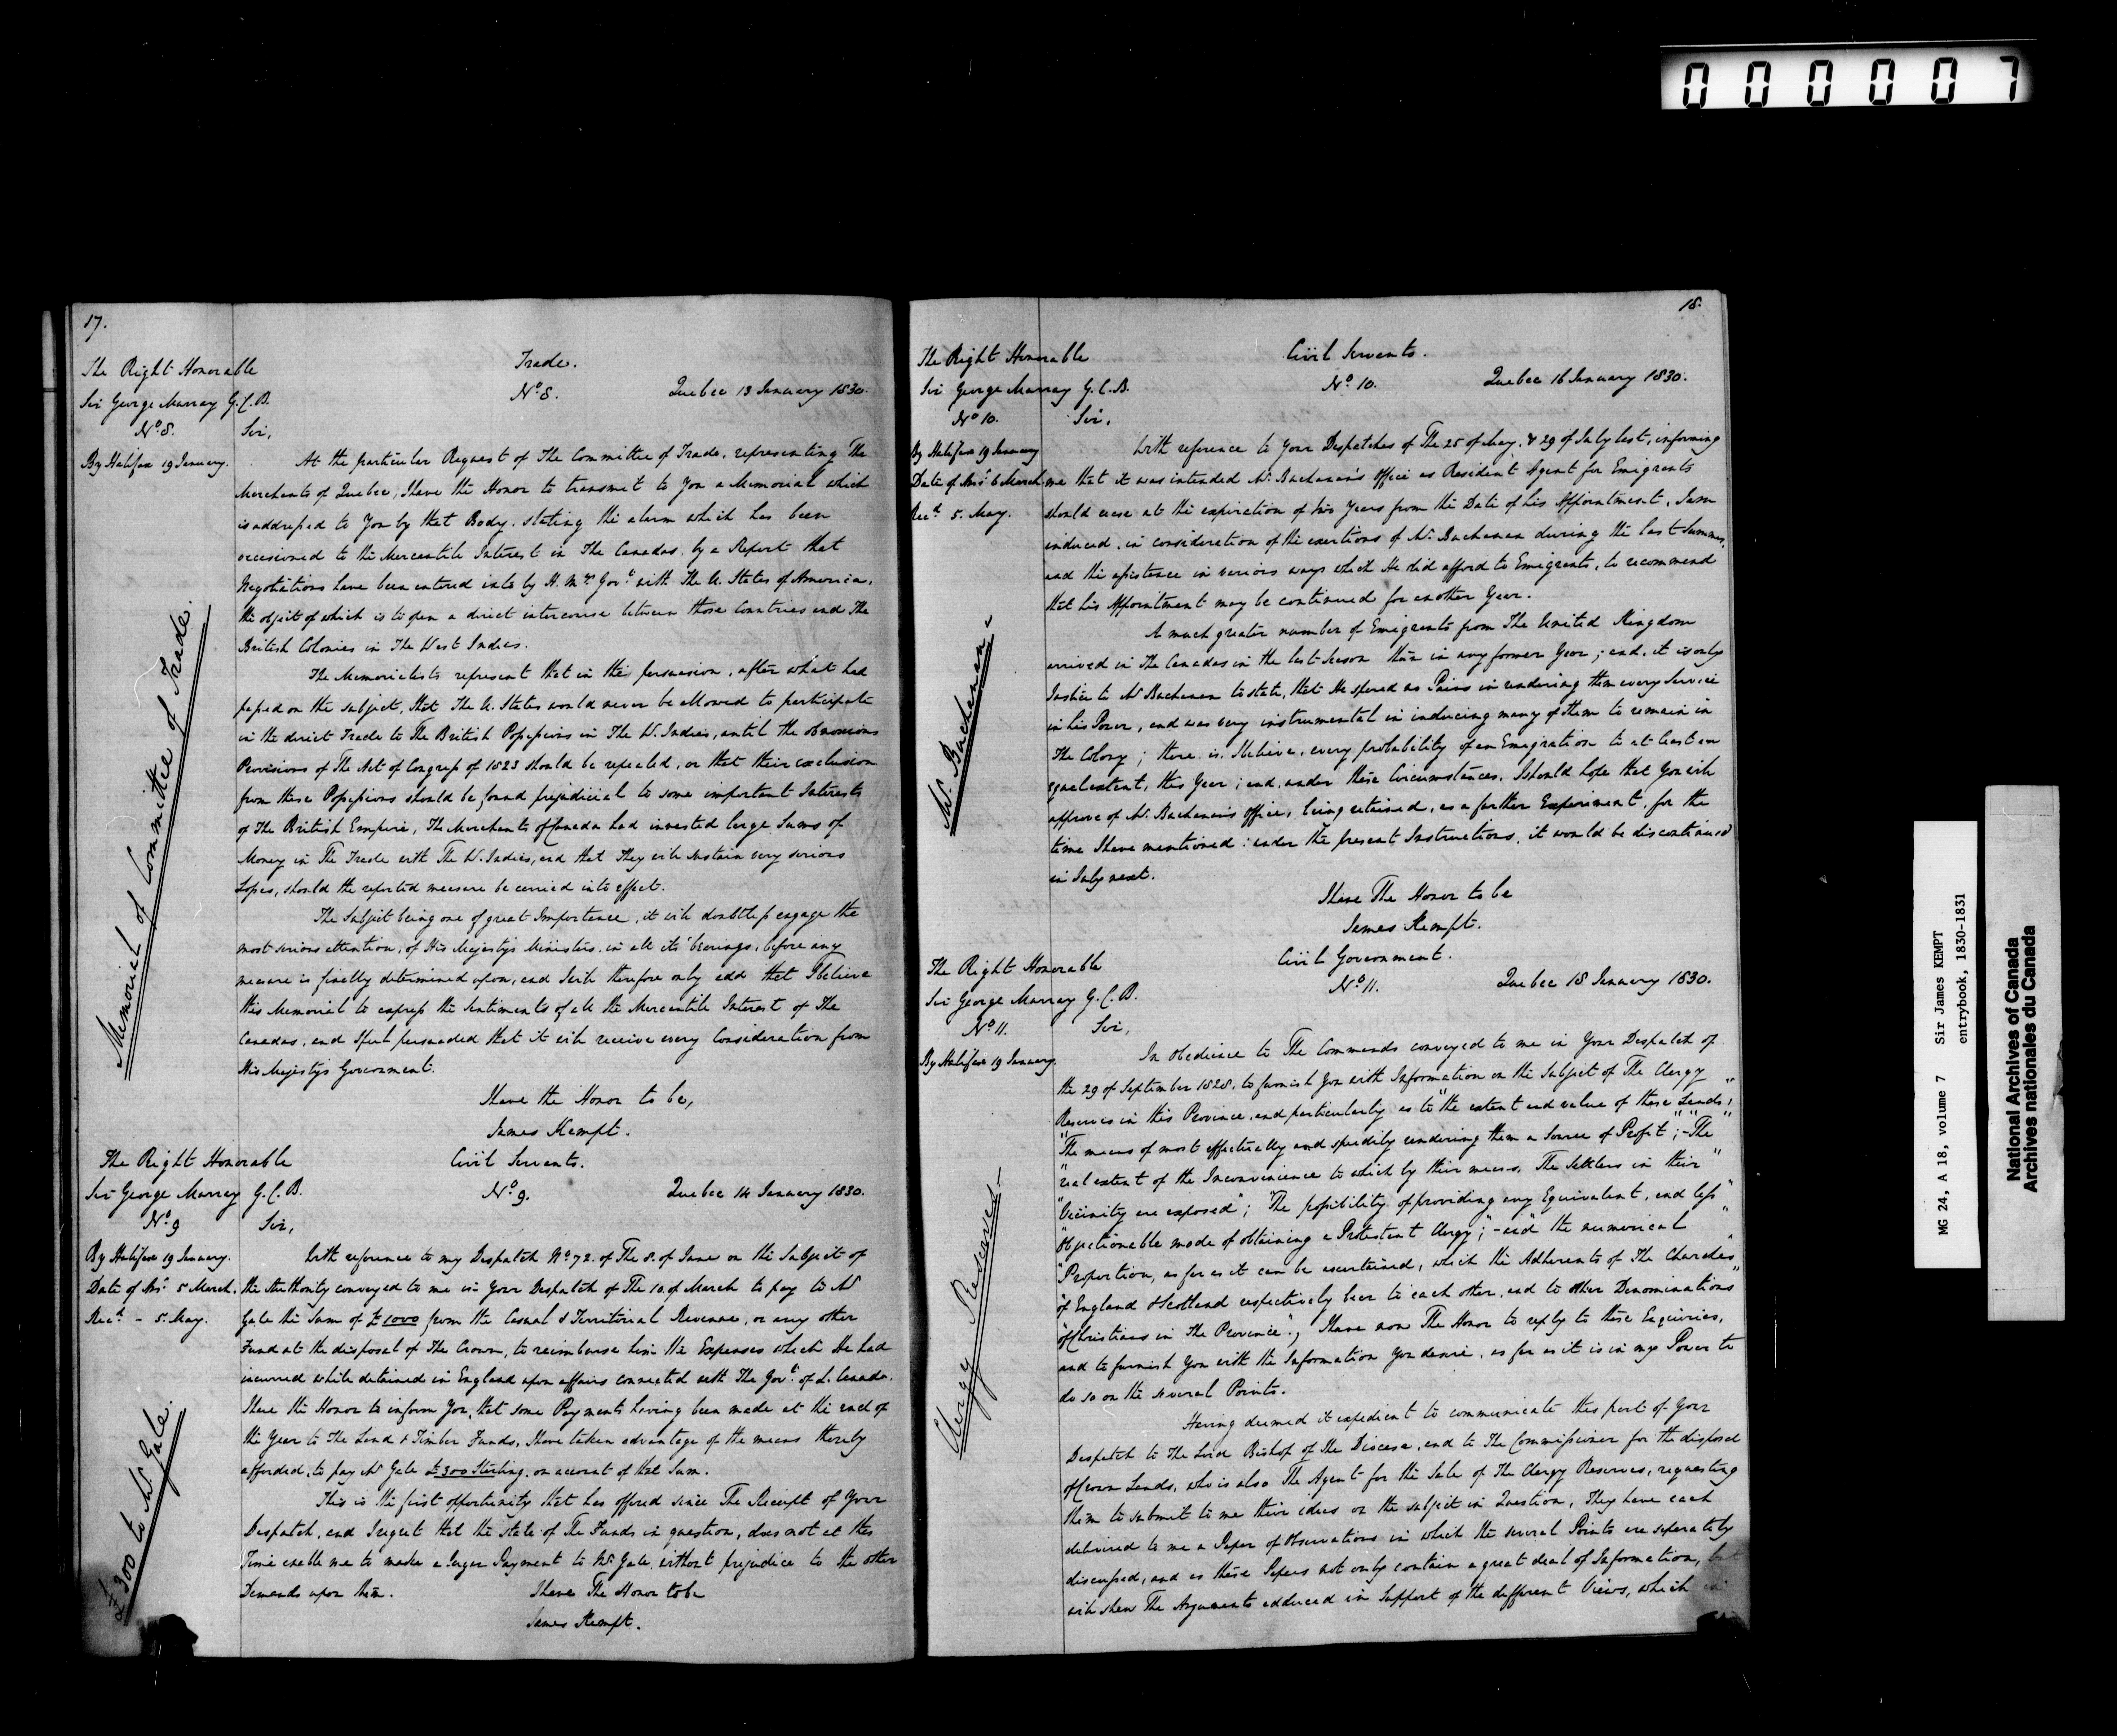 000007
17.
The Right Honorable
Sir George Murray G.C.B.
No. 8.
By Halifax 19 January.
Memorial of Committee of Trade.
Trade.
No. 8. Quebec 13 January 1830.
Sir,
At the particular Request of The Committee of Trade, representing The
Merchants of Quebec, I have the Honor to transmit to You a Memorial which
is addressed to You by that Body, stating the alarm which has been
occasioned to the Mercantile Interest in The Canadas, by a Report that
Negotiations have been entered into by H. M's Govt with The U. States of America,
the object of which is to open a direct intercourse between those Countries and The
British Colonies in The West Indies.
The Memorialists represent that in the persuasion, after what had
passed on the subject, that The U. States would never be allowed to participate
in the direct Trade to The British Possessions in The W. Indies, until the obnoxious
Provisions of The Act of Congress of 1823 should be repealed, or that their exclusion
from these Possessions should be found prejudicial to some important Interests
of The British Empire, The Merchants of Canada had invested large Sums of
Money in The Trade with The W. Indies, and that They will sustain very serious
Losses, should the reported measure be carried into effect.
The Subject being one of great Importance, it will doubtless engage the
most serious attention, of His Majesty's Ministers, in all its bearings, before any
measure is finally determined upon, and I will therefore only add that I believe
this Memorial to express the Sentiments of all the Mercantile Interest of The
Canadas, and I feel persuaded that it will receive every Consideration from
His Majesty's Government.
I have the Honor to be,
James Kempt.
The Right Honorable
Sir George Murray G.C.B.
No. 9
By Halifax 19 January.
Date of Ansr 5 March.
Recd - 5 May.
£300 to Mr Gale.
Civil Servants.
No. 9. Quebec 14 January 1830.
Sir,
With reference to my Despatch No. 72. of The 8. of June on the Subject of
the Authority conveyed to me in Your Despatch of The 10 of March to pay to Mr
Gale the Sum of £1000 from the Casual & Territorial Revenue, or any other
Fund at the disposal of The Crown, to reimburse him the Expenses which He had
incurred while detained in England upon affairs connected with The Govt of L. Canada.
I have the Honor to inform You, that some Payments having been made at the end of
the Year to The Land & Timber Funds, I have taken advantage of the means thereby
afforded, to pay Mr Gale £300 Sterling, on account of that Sum.
This is the first opportunity that has offered since The Receipt of Your
Despatch, and I regret that the State of The Funds in question, does not at this
Time enable me to make a larger Payment to Mr Gale, without prejudice to the other
Demands upon them. I have The Honor to be
James Kempt.
18.
The Right Honorable
Sir George Murray G.C.B.
No. 10.
By Halifax 19 January
Date of Ansr 6 March.
Recd 5. May.
Mr. Buchanan.
Civil Servants.
No. 10. Quebec 16 January 1830.
Sir,
With reference to Your Despatches of The 25 of May, & 29 of July last, informing
me that it was intended Mr Buchanan's Office as Resident Agent for Emigrants
should cease at the expiration of two Years from the Date of his Appointment, I am
induced, in consideration of the exertions of Mr Buchanan during the last Summer,
and the assistance in various ways which He did afford to Emigrants, to recommend
that his Appointment may be continued for another Year.
A much greater number of Emigrants from The United Kingdom
arrived in The Canadas in the last Season than in any former Year; and, it is only
Justice to Mr Buchanan to state, that He spared no Pains in rendering them every Service
in his Power, and was very instrumental in inducing many of them to remain in
The Colony; there is, I believe, every probability of an Emigration to at least an
equal extent, this Year; and, under these Circumstances, I should hope that You will
approve of Mr Buchanan's Office, being retained, as a further Experiment, for the
time I have mentioned: under the present Instructions, it would be discontinued
in July next.
I have The Honor to be
James Kempt.
The Right Honorable
Sir George Murray G.C.B.
No. 11.
By Halifax 19 January.
Clergy Reserves.
Civil Government.
No. 11. Quebec 18 January 1830.
Sir,
In obedience to The Commands conveyed to me in Your Despatch of
the 29 of September 1828, to furnish You with Information on the Subject of The Clergy
Reserves in this Province, and particularly as to "the extent and value of these Lands;"
"The means of most effectually and speedily rendering them a Source of Profit"; - "The"
"real extent of the Inconvenience to which by their means, The Settlers in their"
"Vicinity are exposed"; "The possibility of providing any Equivalent, and less"
"objectionable mode of obtaining a Protestant Clergy;" - and "the numerical"
"Proportion, as far as it can be ascertained, which the Adherents of The Churches"
"of England & Scotland respectively bear to each other, and to other Denominations"
"of Christians in The Province"., I have now The Honor to reply to these Enquiries,
and to furnish You with the Information You desire, as far as it is in my Power to
do so on the several Points.
Having deemed it expedient to communicate this part of Your
Despatch to The Lord Bishop of the Diocese, and to The Commissioner for the disposal
of Crown Lands, who is also The Agent for the Sale of The Clergy Reserves, requesting
them to submit to me their ideas on the subject in Question, They have each
delivered to me a Paper of Observations in which the several Points are separately
discussed, and as these Papers not only contain a great deal of Information, but
will shew The Arguments adduced in Support of the different Views, which
MG 24, A 18, volume 7 Sir James KEMPT
entrybook, 1830-1831
National Archives of Canada
Archives nationales du Canada